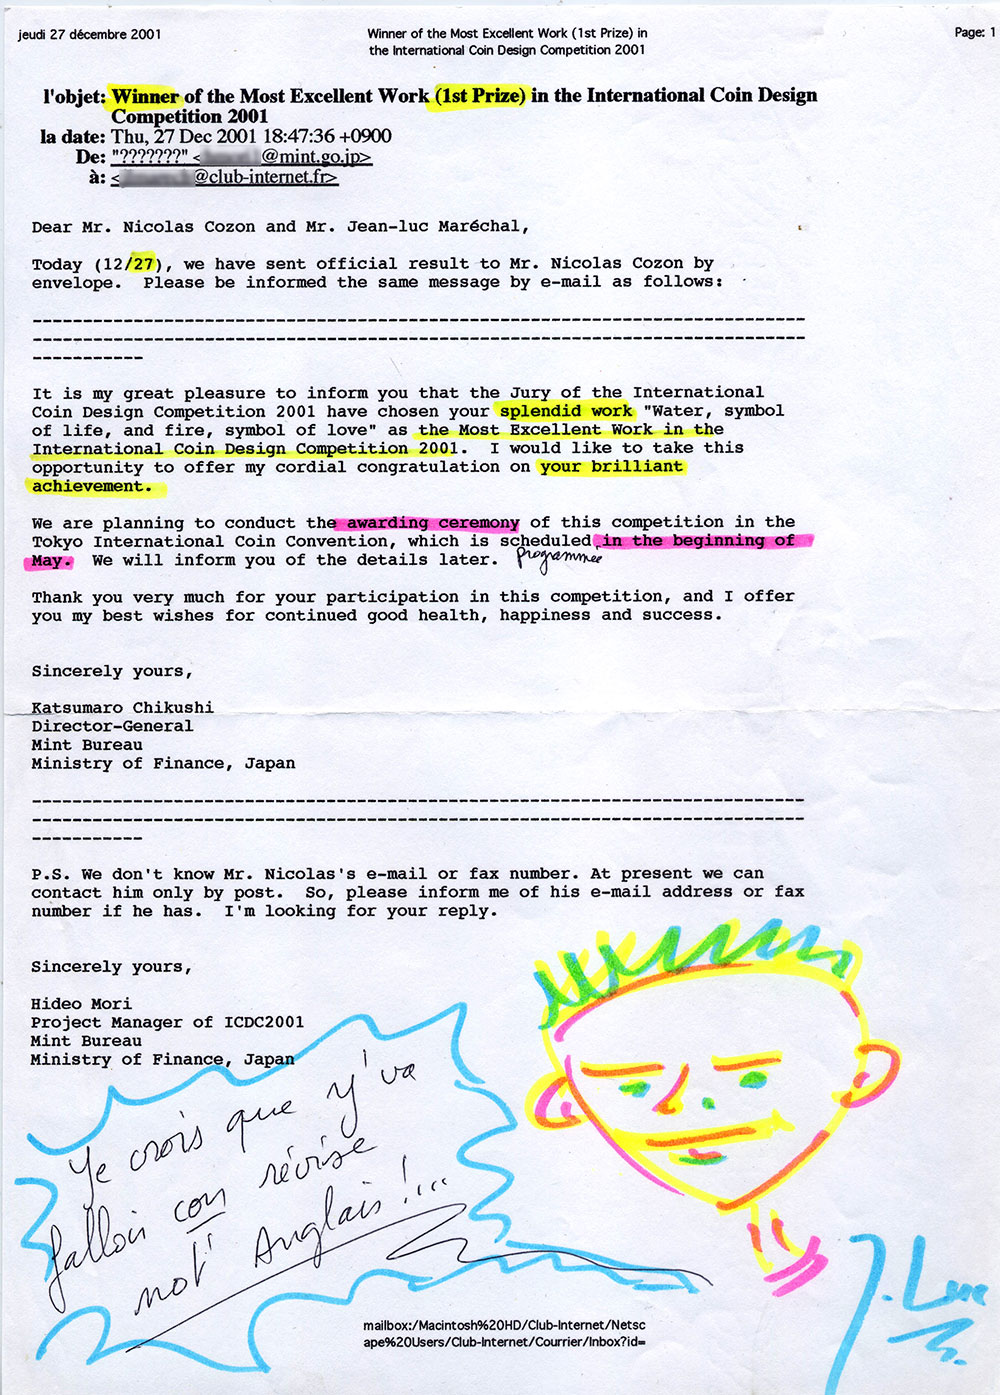 jeudi 27 décembre 2001
Winner of the Most Excellent Work (1st Prize) in
the International Coin Design Competition 2001
Page: 1
l'objet: Winner of the Most Excellent Work (1st Prize) in the International Coin Design
Competition 2001
la date: Thu, 27 Dec 2001 18:47:36 +0900
De: "???????" < @mint.go.jp>
à: < @club-internet.fr>
Dear Mr. Nicolas Cozon and Mr. Jean-luc Maréchal,
Today (12/27), we have sent official result to Mr. Nicolas Cozon by
envelope.  Please be informed the same message by e-mail as follows:
----------------------------------------------------------------------------
----------------------------------------------------------------------------
-----------
It is my great pleasure to inform you that the Jury of the International
Coin Design Competition 2001 have chosen your splendid work "Water, symbol
of life, and fire, symbol of love" as the Most Excellent Work in the
International Coin Design Competition 2001.  I would like to take this
opportunity to offer my cordial congratulation on your brilliant
achievement.
We are planning to conduct the awarding ceremony of this competition in the
Tokyo International Coin Convention, which is scheduled in the beginning of
programmée
May.  We will inform you of the details later.
Thank you very much for your participation in this competition, and I offer
you my best wishes for continued good health, happiness and success.
Sincerely yours,
Katsumaro Chikushi
Director-General
Mint Bureau
Ministry of Finance, Japan
----------------------------------------------------------------------------
----------------------------------------------------------------------------
-----------
P.S. We don't know Mr. Nicolas's e-mail or fax number. At present we can
contact him only by post.  So, please inform me of his e-mail address or fax
number if he has.  I'm looking for your reply.
Sincerely yours,
Hideo Mori
Project Manager of ICDC2001
Mint Bureau
Ministry of Finance, Japan
Je crois que y'va
falloir con révise
not' Anglais !...
J. Luc
mailbox:/Macintosh%20HD/Club-Internet/Netsc
ape%20Users/Club-Internet/Courrier/Inbox?id=